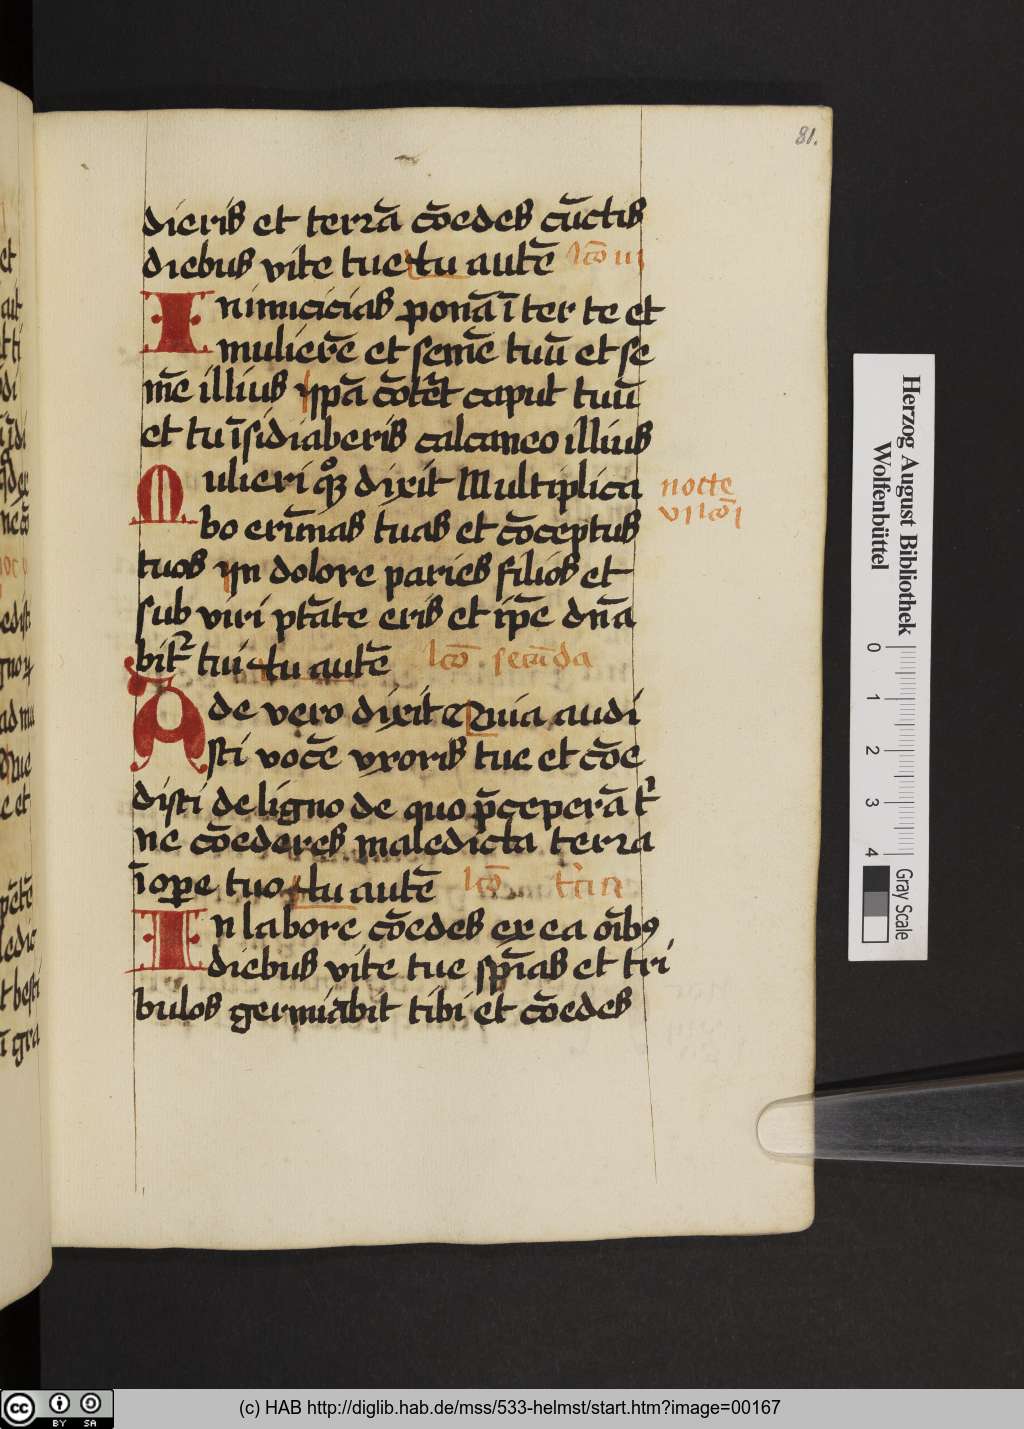 81.
dieris et terrā cōedes cūctis
diebus vite tue tu autē lcō iij
Inimicicias ponā īter te et
mulierē et semē tuū et se
mē illius ip̄a cōtēt caput tuū
et tu īsidiaberis calcaneo illius
Mulieri qꝫ dixit Multiplica
bo erūnas tuas et cōceptus
nocte
vi lcō i
tuos in dolore paries filios et
sub viri ptāte eris et ip̄e dn̄a
bit̉ tui tu autē lcō secūda
Ade vero dixit Quia audi
sti vocē vxoris tue et cōe
disti de ligno de quo p̄ceperā t̉
ne cōederes maledicta terra
ī oꝑe tuo tu autē lcō t̉cia
In labore cōedes ex ea oībꝯ
diebus vite tue sp̄īas et tri
bulos germīabit tibi et cōedes
Herzog August Bibliothek
Wolfenbüttel
0 1 2 3 4
Gray Scale
BY SA
(c) HAB http://diglib.hab.de/mss/533-helmst/start.htm?image=00167